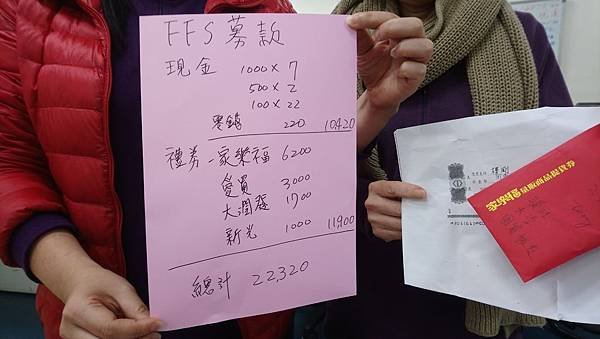 FFS募款
現金 1000×7
500×2
100×22
零錢 220 10420
禮券-家樂福 6200
愛買 3000
大潤發 1700
新光 1000 11,900
總計 22,320
家樂福量販商品提貨券